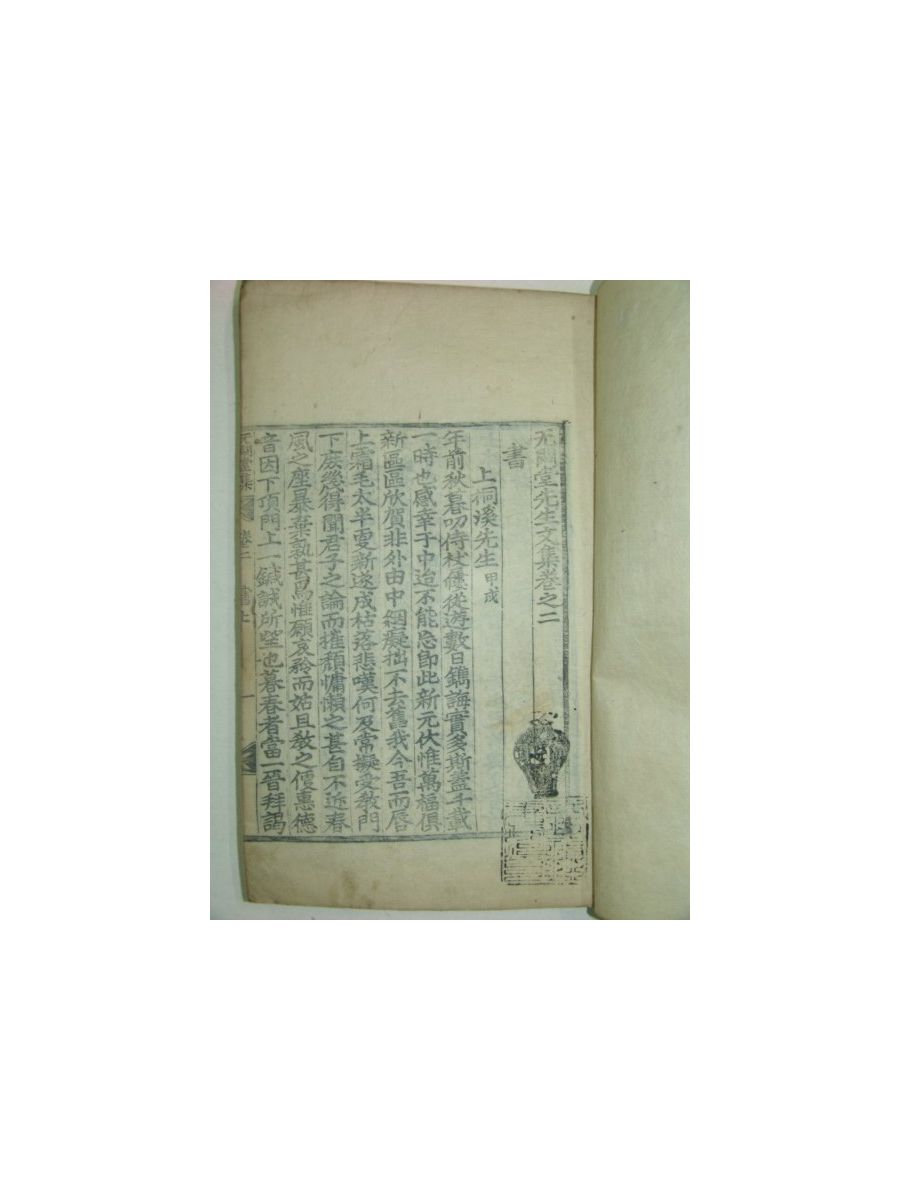 无悶堂先生文集卷之二
書
上桐溪先生 甲戌
年前秋暮叨侍杖屨從遊數日鐫誨實多斯蓋千載
一時也感幸于中迨不能忘即此新元伏惟萬福俱
新區區欣賀非外由中絪癡拙不去舊我今吾而唇
上霜毛太半更新遂成枯落悲嘆何及常擬受敎門
下庶幾得聞君子之論而摧頹慵懶之甚自不近春
風之座暴棄孰甚焉惟願哀矜而姑且敎之儻惠德
音因下項門上一鍼誠所望也暮春者當一晉拜謁
卷二
書
一